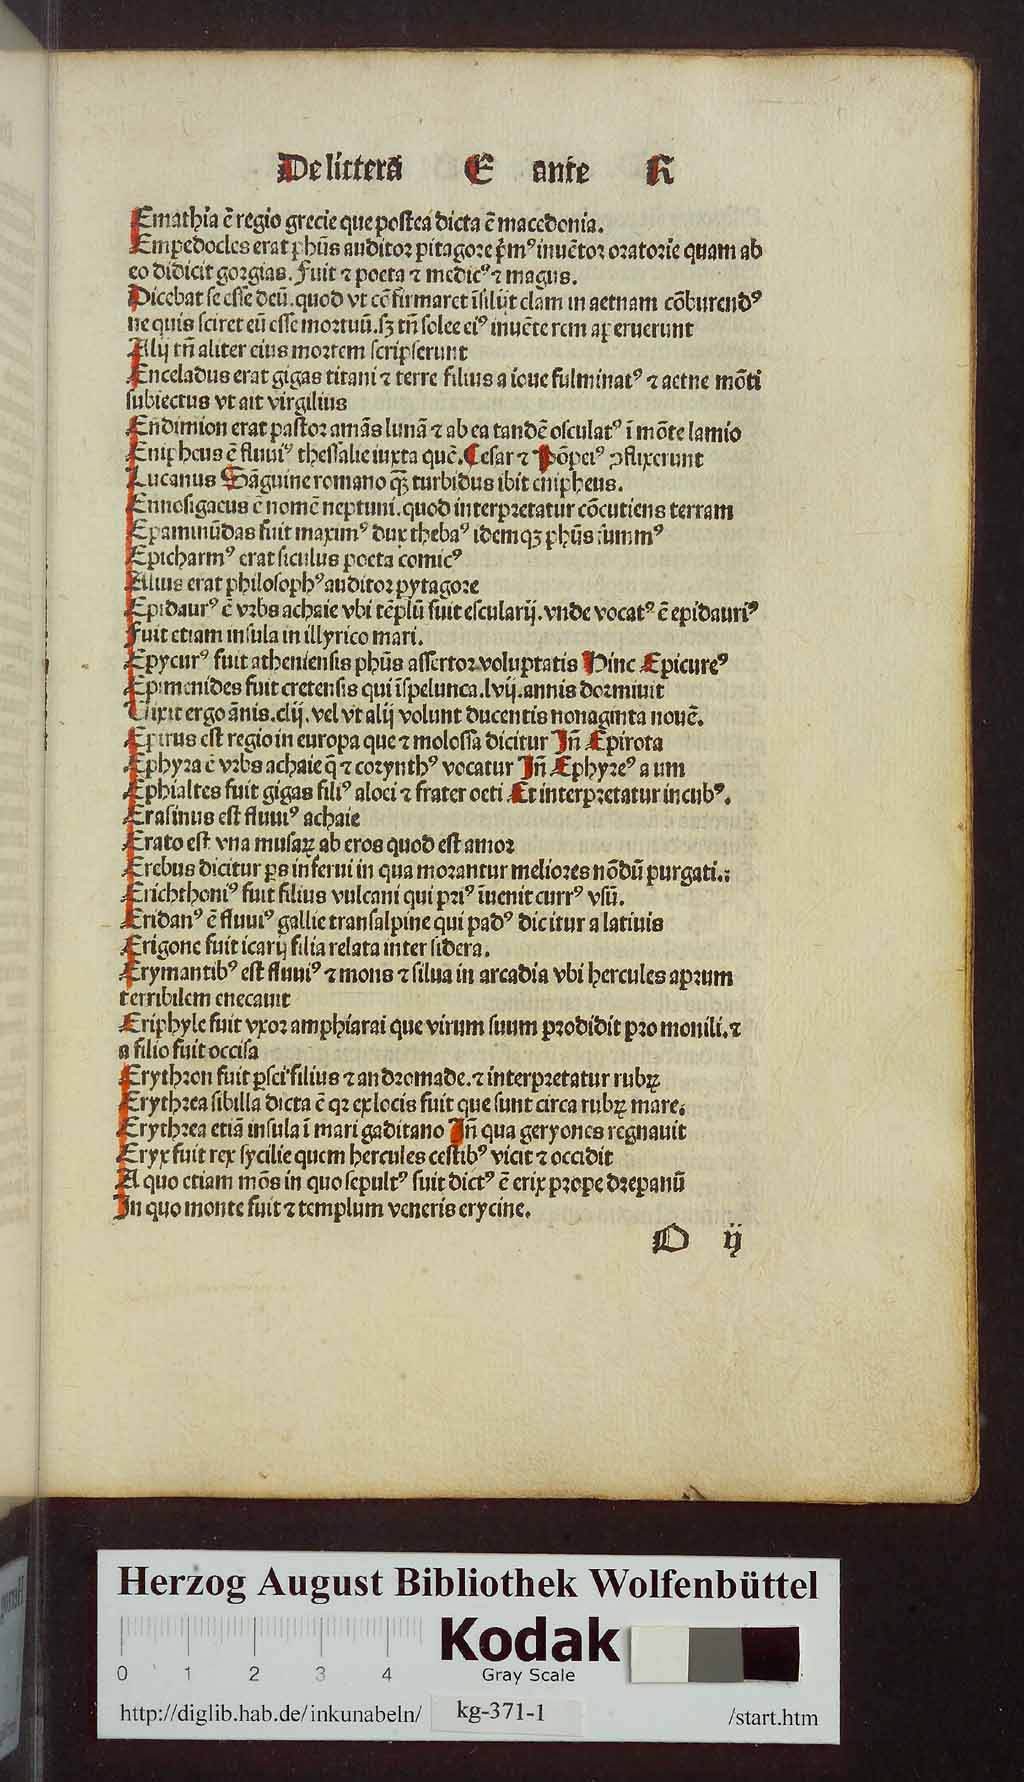 De litterā E ante R
Emathia ē regio grecie que postea dicta ē macedonia.
Empedocles erat phūs auditor pitagore p̄mꝰ inuētor oratorie quam ab
eo didicit gorgias. Fuit ⁊ poeta ⁊ medicꝰ ⁊ magus.
Dicebat se esse deū. quod vt cōfirmaret īsilijt clam in aetnam cōburendꝰ
ne quis sciret eū esse mortuū. sꝫ tn̄ solee eiꝰ inuēte rem aperuerunt
Alij tn̄ aliter eius mortem scripserunt
Enceladus erat gigas titani ⁊ terre filius a ioue fulminatꝰ ⁊ aetne mōti
subiectus vt ait virgilius
Endimion erat pastor amās lunā ⁊ ab ea tandē osculatꝰ ī mōte lamio
Enipheus ē fluuiꝰ thessalie iuxta quē. Cesar ⁊ Pōpeiꝰ ꝯflixerunt
Lucanus Sāguine romano qꝫ turbidus ibit enipheus.
Ennosigaeus ē nomē neptuni. quod interpretatur cōcutiens terram
Epaminūdas fuit maximꝰ dux thebaꝰ idemqꝫ phūs summꝰ
Epicharmꝰ erat siculus poeta comicꝰ
Alius erat philosophꝰ auditor pytagore
Epidaurꝰ ē vrbs achaie vbi tēplū fuit escularij. vnde vocatꝰ ē epidauriꝰ
Fuit etiam insula in illyrico mari.
Epycurꝰ fuit atheniensis phūs assertor voluptatis Hinc Epicureꝰ
Epimenides fuit cretensis qui īspelunca. lvij. annis dormiuit
Uixit ergo ānis. clij. vel vt alij volunt ducentis nonaginta nouē.
Epirus est regio in europa que ⁊ molossa dicitur In̄ Epirota
Ephyra ē vrbs achaie q̄ ⁊ corynthꝰ vocatur In̄ Ephyreꝰ a um
Ephialtes fuit gigas filiꝰ aloei ⁊ frater oeti Et interpretatur incubꝰ.
Erasinus est fluuiꝰ achaie
Erato est vna musaꝝ ab eros quod est amor
Erebus dicitur ꝑs inferni in qua morantur meliores nōdū purgati.:
Erichthoniꝰ fuit filius vulcani qui priꝰ īuenit currꝰ vsū.
Eridanꝰ ē fluuiꝰ gallie transalpine qui padꝰ dicitur a latinis
Erigone fuit icarij filia relata inter sidera.
Erymantibꝰ est fluuiꝰ ⁊ mons ⁊ silua in arcadia vbi hercules aprum
terribilem enecauit
Eriphyle fuit vxor amphiarai que virum suum prodidit pro monili. ⁊
a filio fuit occisa
Erythron fuit ꝑsei filius ⁊ andromade. ⁊ interpretatur rubꝝ
Erythrea sibilla dicta ē qꝛ ex locis fuit que sunt circa rubꝝ mare.
Erythrea etiā insula ī mari gaditano In̄ qua geryones regnauit
Eryx fuit rex sycilie quem hercules cestibꝰ vicit ⁊ occidit
A quo etiam mōs in quo sepultꝰ fuit dictꝰ ē erix prope drepanū
In quo monte fuit ⁊ templum veneris erycine.
D ij
Herzog August Bibliothek Wolfenbüttel
Kodak
Gray Scale
0 1 2 3 4
http://diglib.hab.de/inkunabeln/ kg-371-1 /start.htm